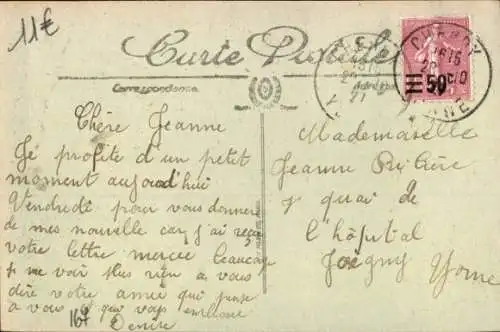 11€
Carte Postale
Correspondance
Adresse
CHENY
YONNE
50
Chère Jeanne
Je profite d'un petit
moment aujord'hui
Vendredi pour vous donner
de mes nouvelle car j'ai reçu
votre lettre mercie beaucoup
je ne voir plus rien a vous
dire votre amie qui pense
a vous et que vous embrasse
Denise
167
Mademaselle
Jeanne
quai de
l'hôpital
Joigny Yonne